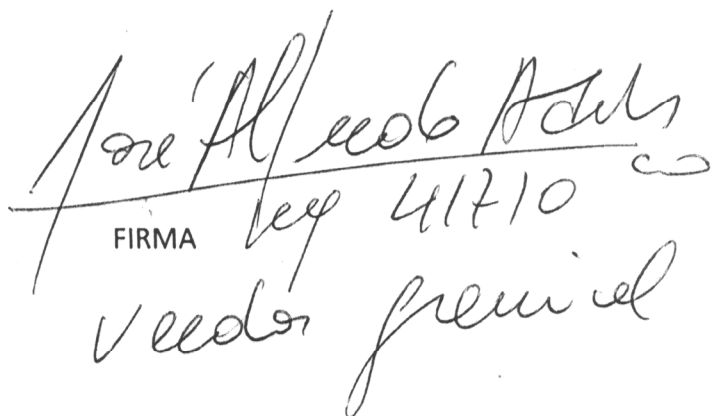 José Alfredo
FIRMA leg 41710
Veedor gremial